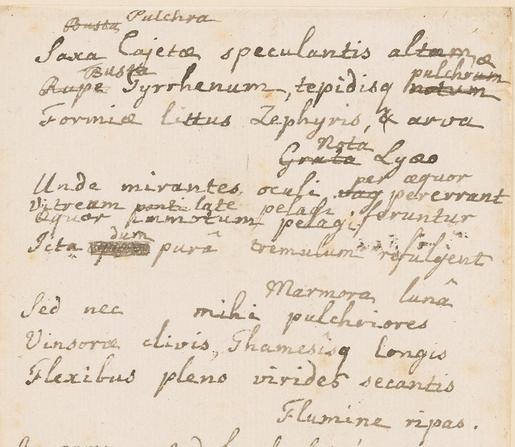 Busta Pulchra
Saxa Cajetæ speculantis altum æ
Busta pulchrum
Rupe Tyrrhenum, tepidisq notum
Formiæ littus Zephyris, & arva
Nota
Grata Lyæo
Unde mirantes oculi per æquor pererrant
Vitream ponti late pelagi feruntur
Æquor immotum pelagi,
dum
Icta purâ tremulum refulgent
Marmora lunâ
Sed nec mihi pulchriores
Vinsoræ clivis, Thamesisq longis
Flexibus pleno virides secantis
Flumine ripas.